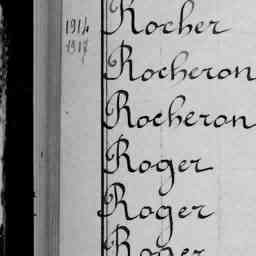 1914 Rocher
1917 Rocheron
Rocheron
Roger
Roger
Roger